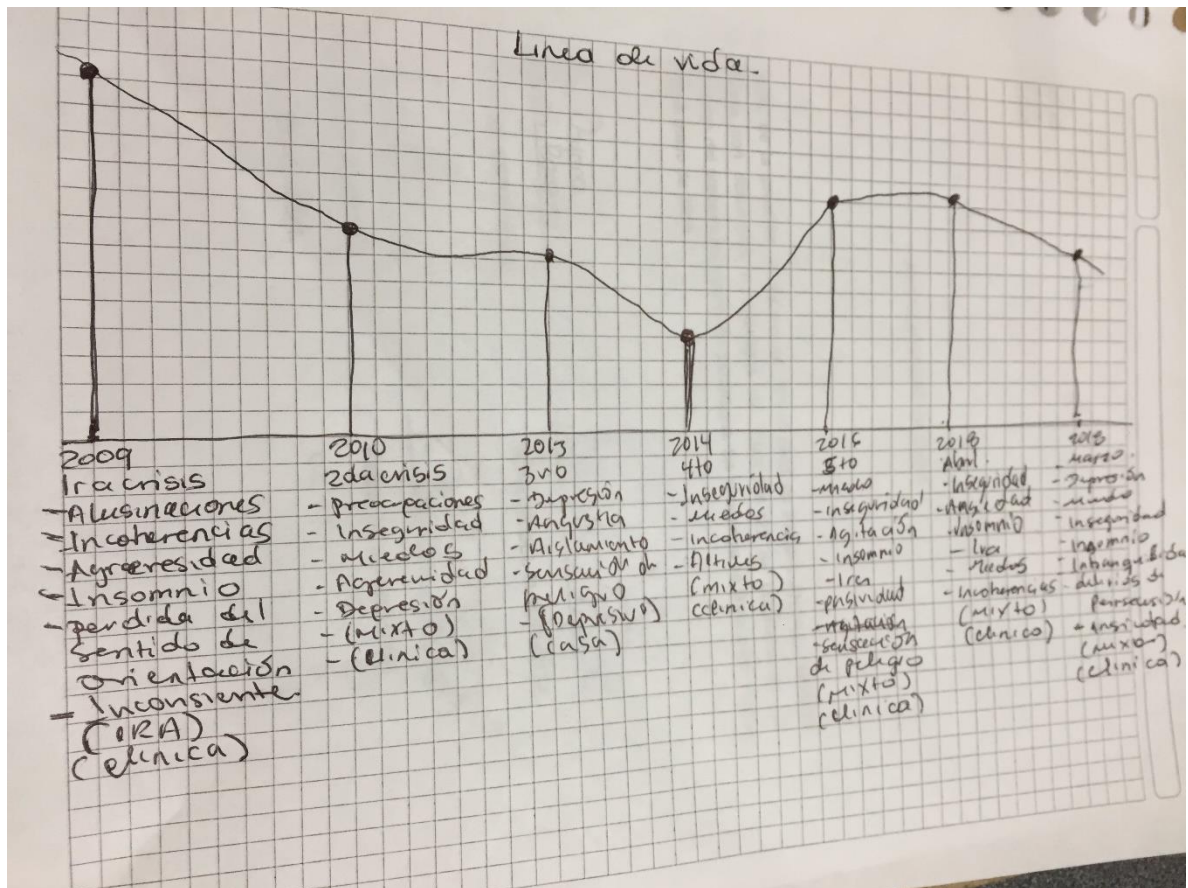 Linea de vida.
2009
1ra crisis
- Alusinaciones
- Incoherencias
- Agreresidad
- Insomnio
- perdida del
sentido de
orientación
- Inconsiente
(IRA)
(clinica)
2010
2da crisis
- preocupaciones
- Inseguridad
- miedos
- Agrerenidad
- Depresión
- (Mixto)
- (clinica)
2013
3ro
- Depresión
- Angustia
- Aislamiento
- sensación de
peligro
- (Depresivo)
(casa)
2014
4to
- Inseguridad
- Miedos
- Incoherencis
- Altives
(mixto)
(clinica)
2015
5to
- miedo
- inseguridad
- Agitación
- Insomnio
- Ira
- pasividad
- Agitación
- sensación
de peligro
(Mixto)
(clinica)
2018
Abril.
- Inseguridad
- Ansiedad
- Insomnio
- Ira
- Miedos
- Incoherencias
(Mixto)
(clinico)
2018
- marzo.
- Depresión
- miedo
- Inseguridad
- Insomnio
- delirios de
- ansiedad
(mixto)
(clinica)